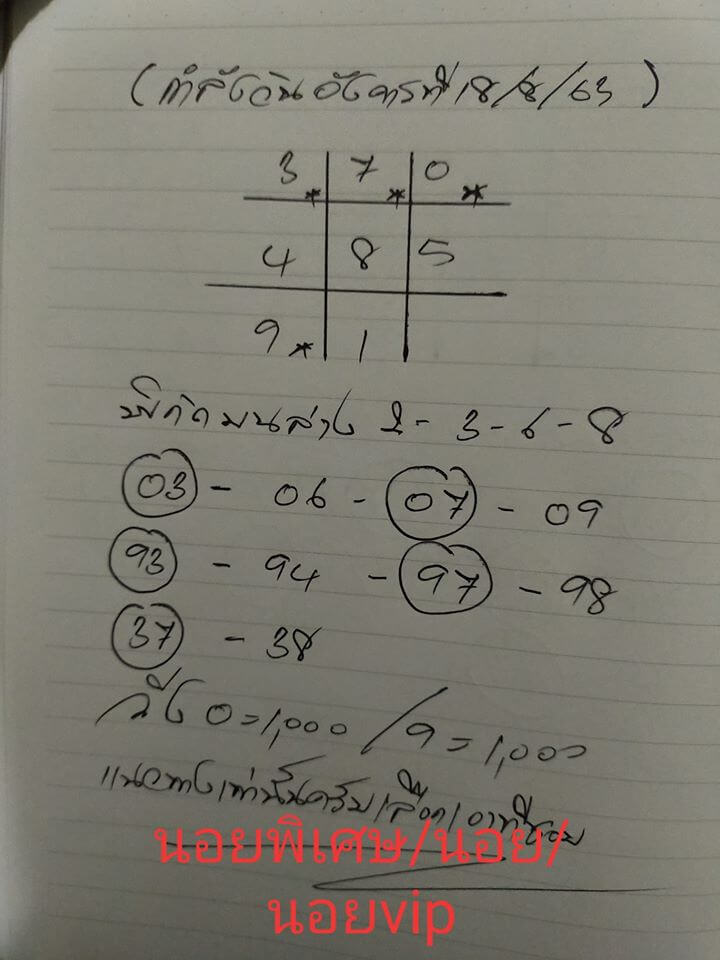 (กำลังวันอังคารที่ 18/8/63)
3* 7* 0*
4 8 5
9* 1
พิกัดบนล่าง 2-3-6-8
03 - 06 - 07 - 09
93 - 94 - 97 - 98
37 - 38
วิ่ง 0=1,000 / 9=1,000
แนวทางเท่านั้นครับ เลือกเอาที่ชอบ
นอยพิเศษ/นอย/
นอยvip